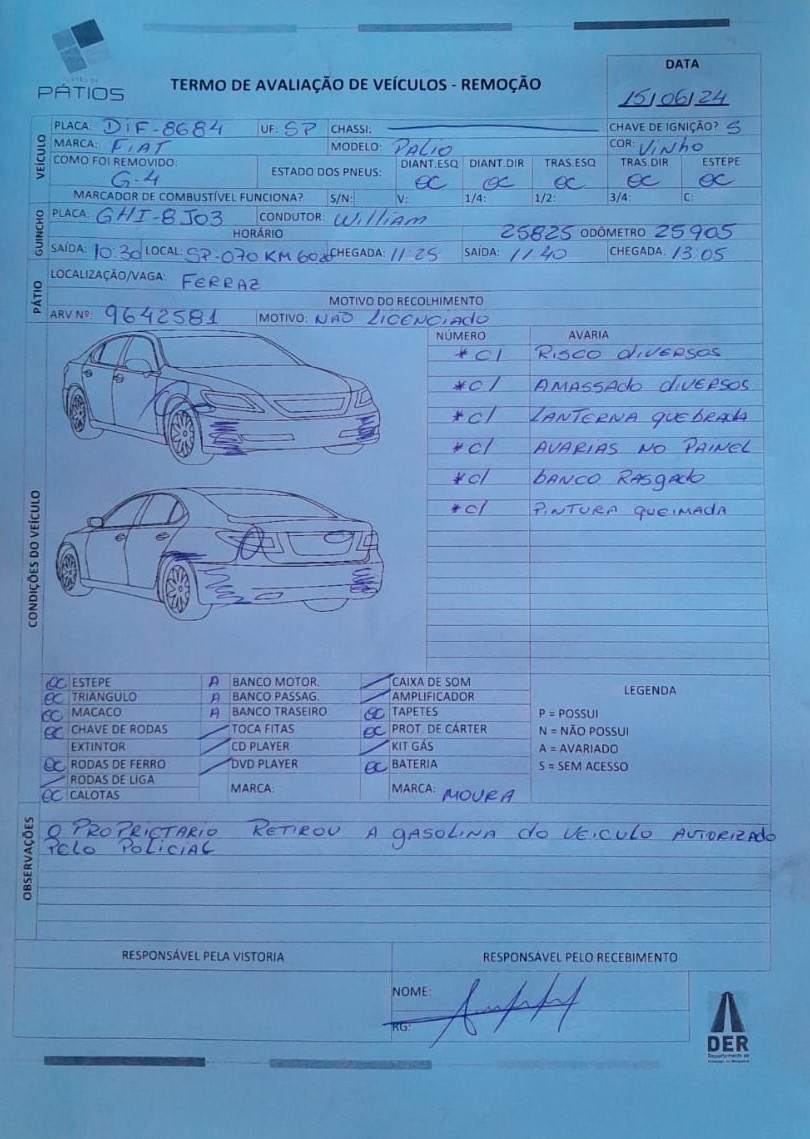 PÁTIOS
TERMO DE AVALIAÇÃO DE VEÍCULOS - REMOÇÃO
DATA
15/06/24
VEÍCULO
PLACA: DIF-8684 UF: SP CHASSI: CHAVE DE IGNIÇÃO? S
MARCA: FIAT MODELO: PALIO COR: VINHO
COMO FOI REMOVIDO: G-4 ESTADO DOS PNEUS: DIANT.ESQ DIANT.DIR TRAS.ESQ TRAS.DIR ESTEPE
OC OC OC OC OC
MARCADOR DE COMBUSTÍVEL FUNCIONA? S/N: V: 1/4: 1/2: 3/4: C:
GUINCHO
PLACA: GHI-8J03 CONDUTOR: William
HORÁRIO 25825 ODÔMETRO 25905
SAÍDA: 10:30 LOCAL: SP-070 KM CHEGADA: 11:25 SAÍDA: 11:40 CHEGADA: 13:05
PÁTIO
LOCALIZAÇÃO/VAGA: FERRAZ
MOTIVO DO RECOLHIMENTO
ARV Nº: 9642581 MOTIVO: NÃO LICENCIADO
CONDIÇÕES DO VEÍCULO
NÚMERO AVARIA
*C/ RISCO DIVERSOS
*C/ AMASSADO DIVERSOS
*C/ LANTERNA QUEBRADA
*C/ AVARIAS NO PAINEL
*C/ BANCO RASGADO
*C/ PINTURA QUEIMADA
OC ESTEPE A BANCO MOTOR. CAIXA DE SOM
OC TRIANGULO A BANCO PASSAG. AMPLIFICADOR
OC MACACO A BANCO TRASEIRO OC TAPETES
OC CHAVE DE RODAS TOCA FITAS OC PROT. DE CÁRTER
EXTINTOR CD PLAYER KIT GÁS
OC RODAS DE FERRO DVD PLAYER OC BATERIA
RODAS DE LIGA MARCA: MARCA: MOURA
OC CALOTAS
LEGENDA
P = POSSUI
N = NÃO POSSUI
A = AVARIADO
S = SEM ACESSO
OBSERVAÇÕES
O PROPRIETARIO RETIROU A GASOLINA DO VEICULO AUTORIZADO
PELO POLICIAL
RESPONSÁVEL PELA VISTORIA RESPONSÁVEL PELO RECEBIMENTO
NOME:
RG:
DER